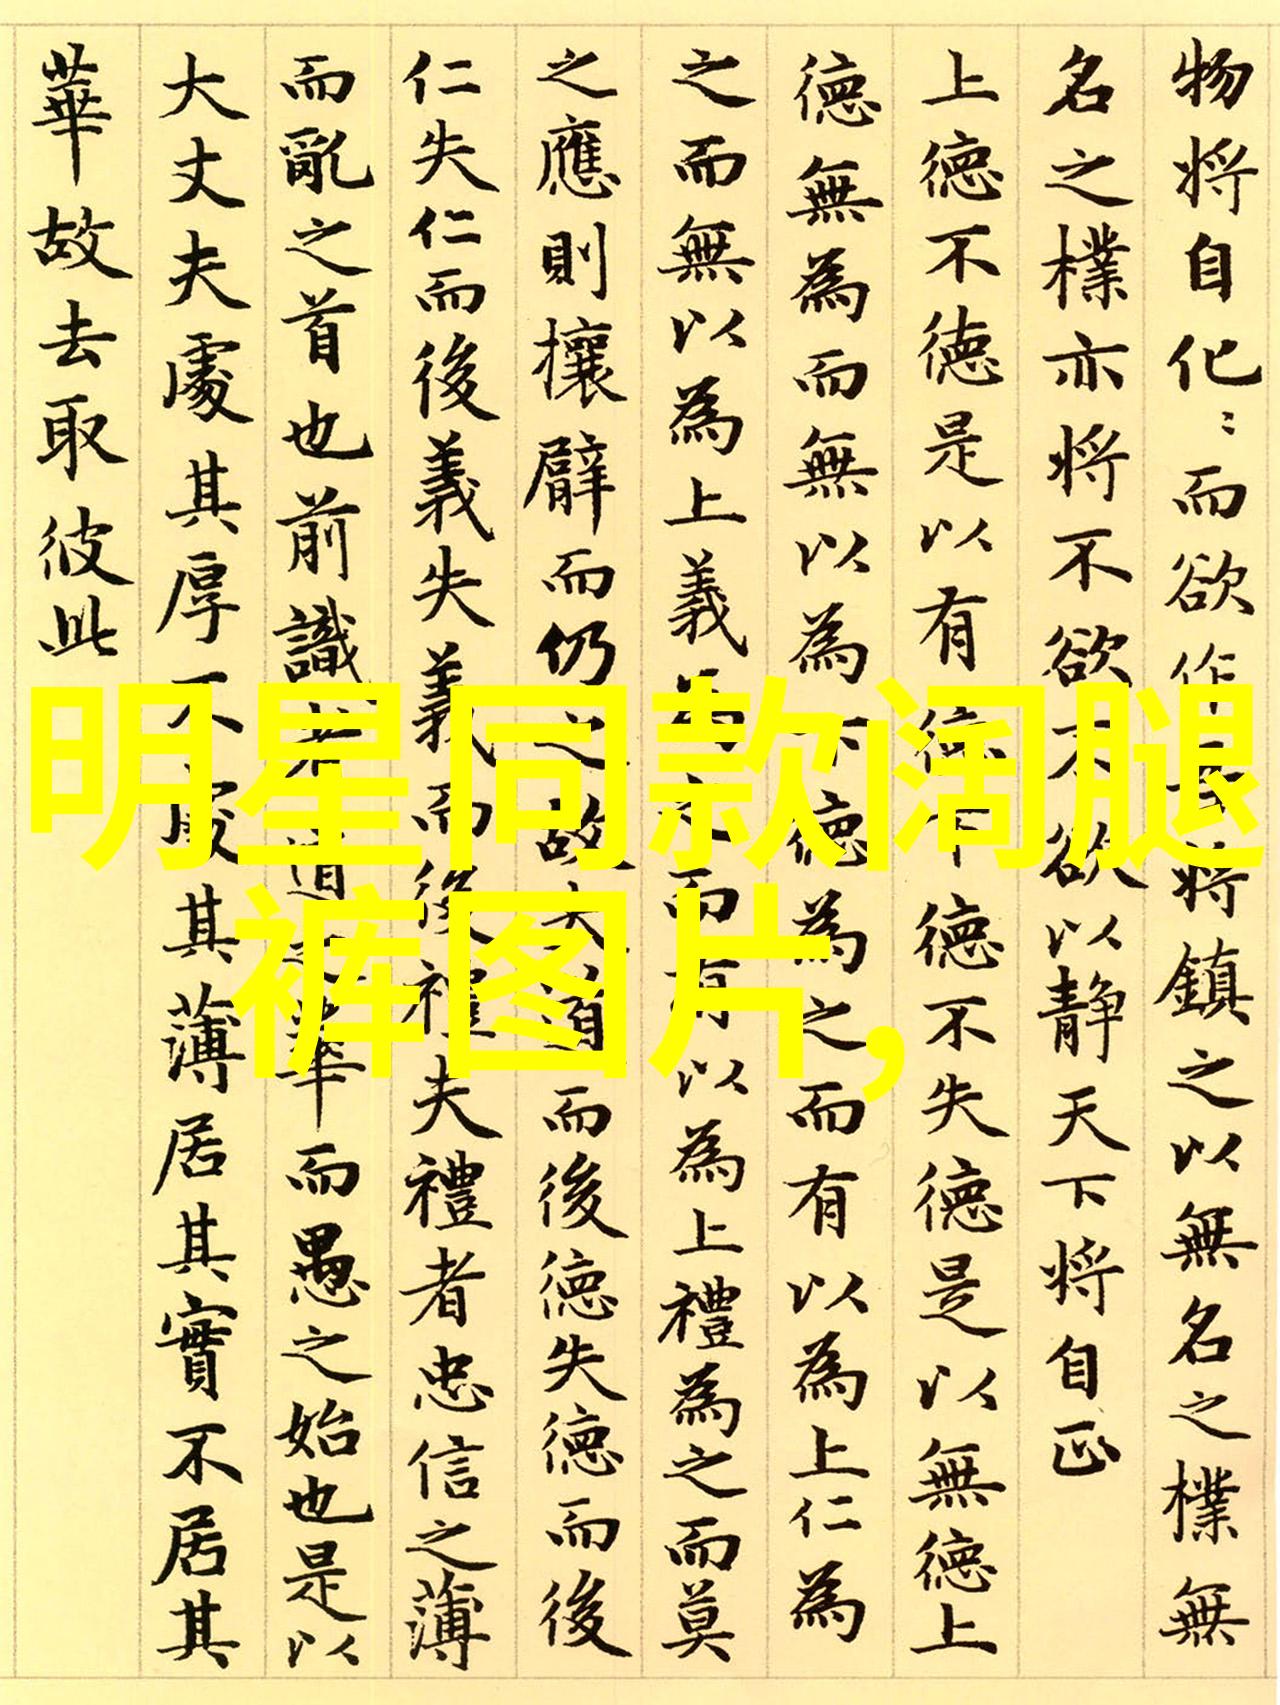 物将自化〻而欲作吾将鎮之以無名之樸無
名之樸亦将不欲不欲以静天下将自正
上德不德是以有德下德不失德是以無德上
德無為而無以為下德為之而有以為上仁為
之而無以為上義為之而有以為上禮為之而莫
之應則攘臂而仍之故失道而後德失德而後
仁失仁而後義失義而後禮夫禮者忠信之薄
而亂之首也前識者道之華而愚之始也是以
大丈夫處其厚不處其薄居其實不居其
華故去取彼此
明星同款阔腿
裤图片,